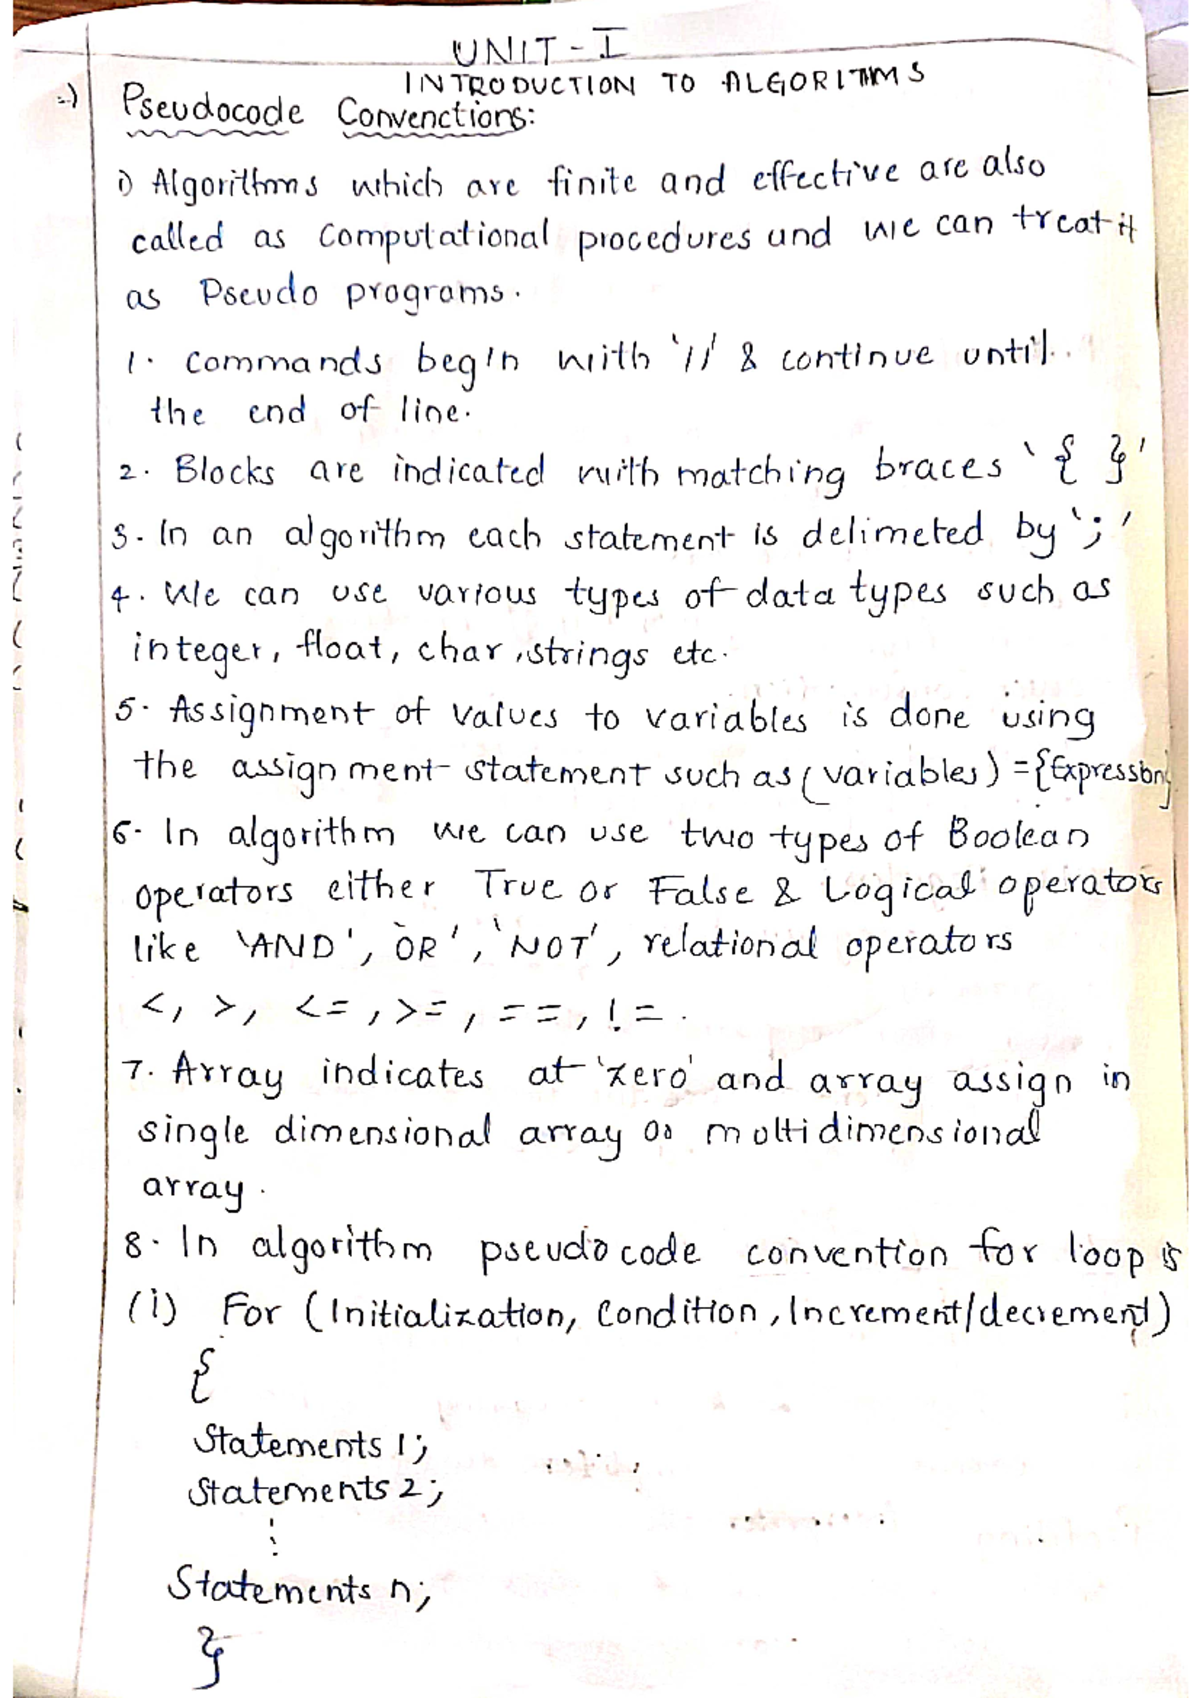 UNIT - I
INTRODUCTION TO ALGORITHMS
Pseudocode Convenctions:
i) Algorithms which are finite and effective are also
called as Computational procedures and we can treat it
as Pseudo programs.
1. Commands begin with '//' & continue until..
the end of line.
2. Blocks are indicated with matching braces '{ }'
3. In an algorithm each statement is delimeted by ';'
4. We can use various types of data types such as
integer, float, char, strings etc.
5. Assignment of values to variables is done using
the assignment statement such as (variables) = {Expression}
6. In algorithm we can use two types of Boolean
operators either True or False & Logical operators
like 'AND', 'OR', 'NOT', relational operators
<, >, <=, >=, ==, !=.
7. Array indicates at 'zero' and array assign in
single dimensional array or multidimensional
array.
8. In algorithm pseudocode convention for loop is
(i) For (Initialization, Condition, Increment/decrement)
{
Statements 1;
Statements 2;
⋮
Statements n;
}